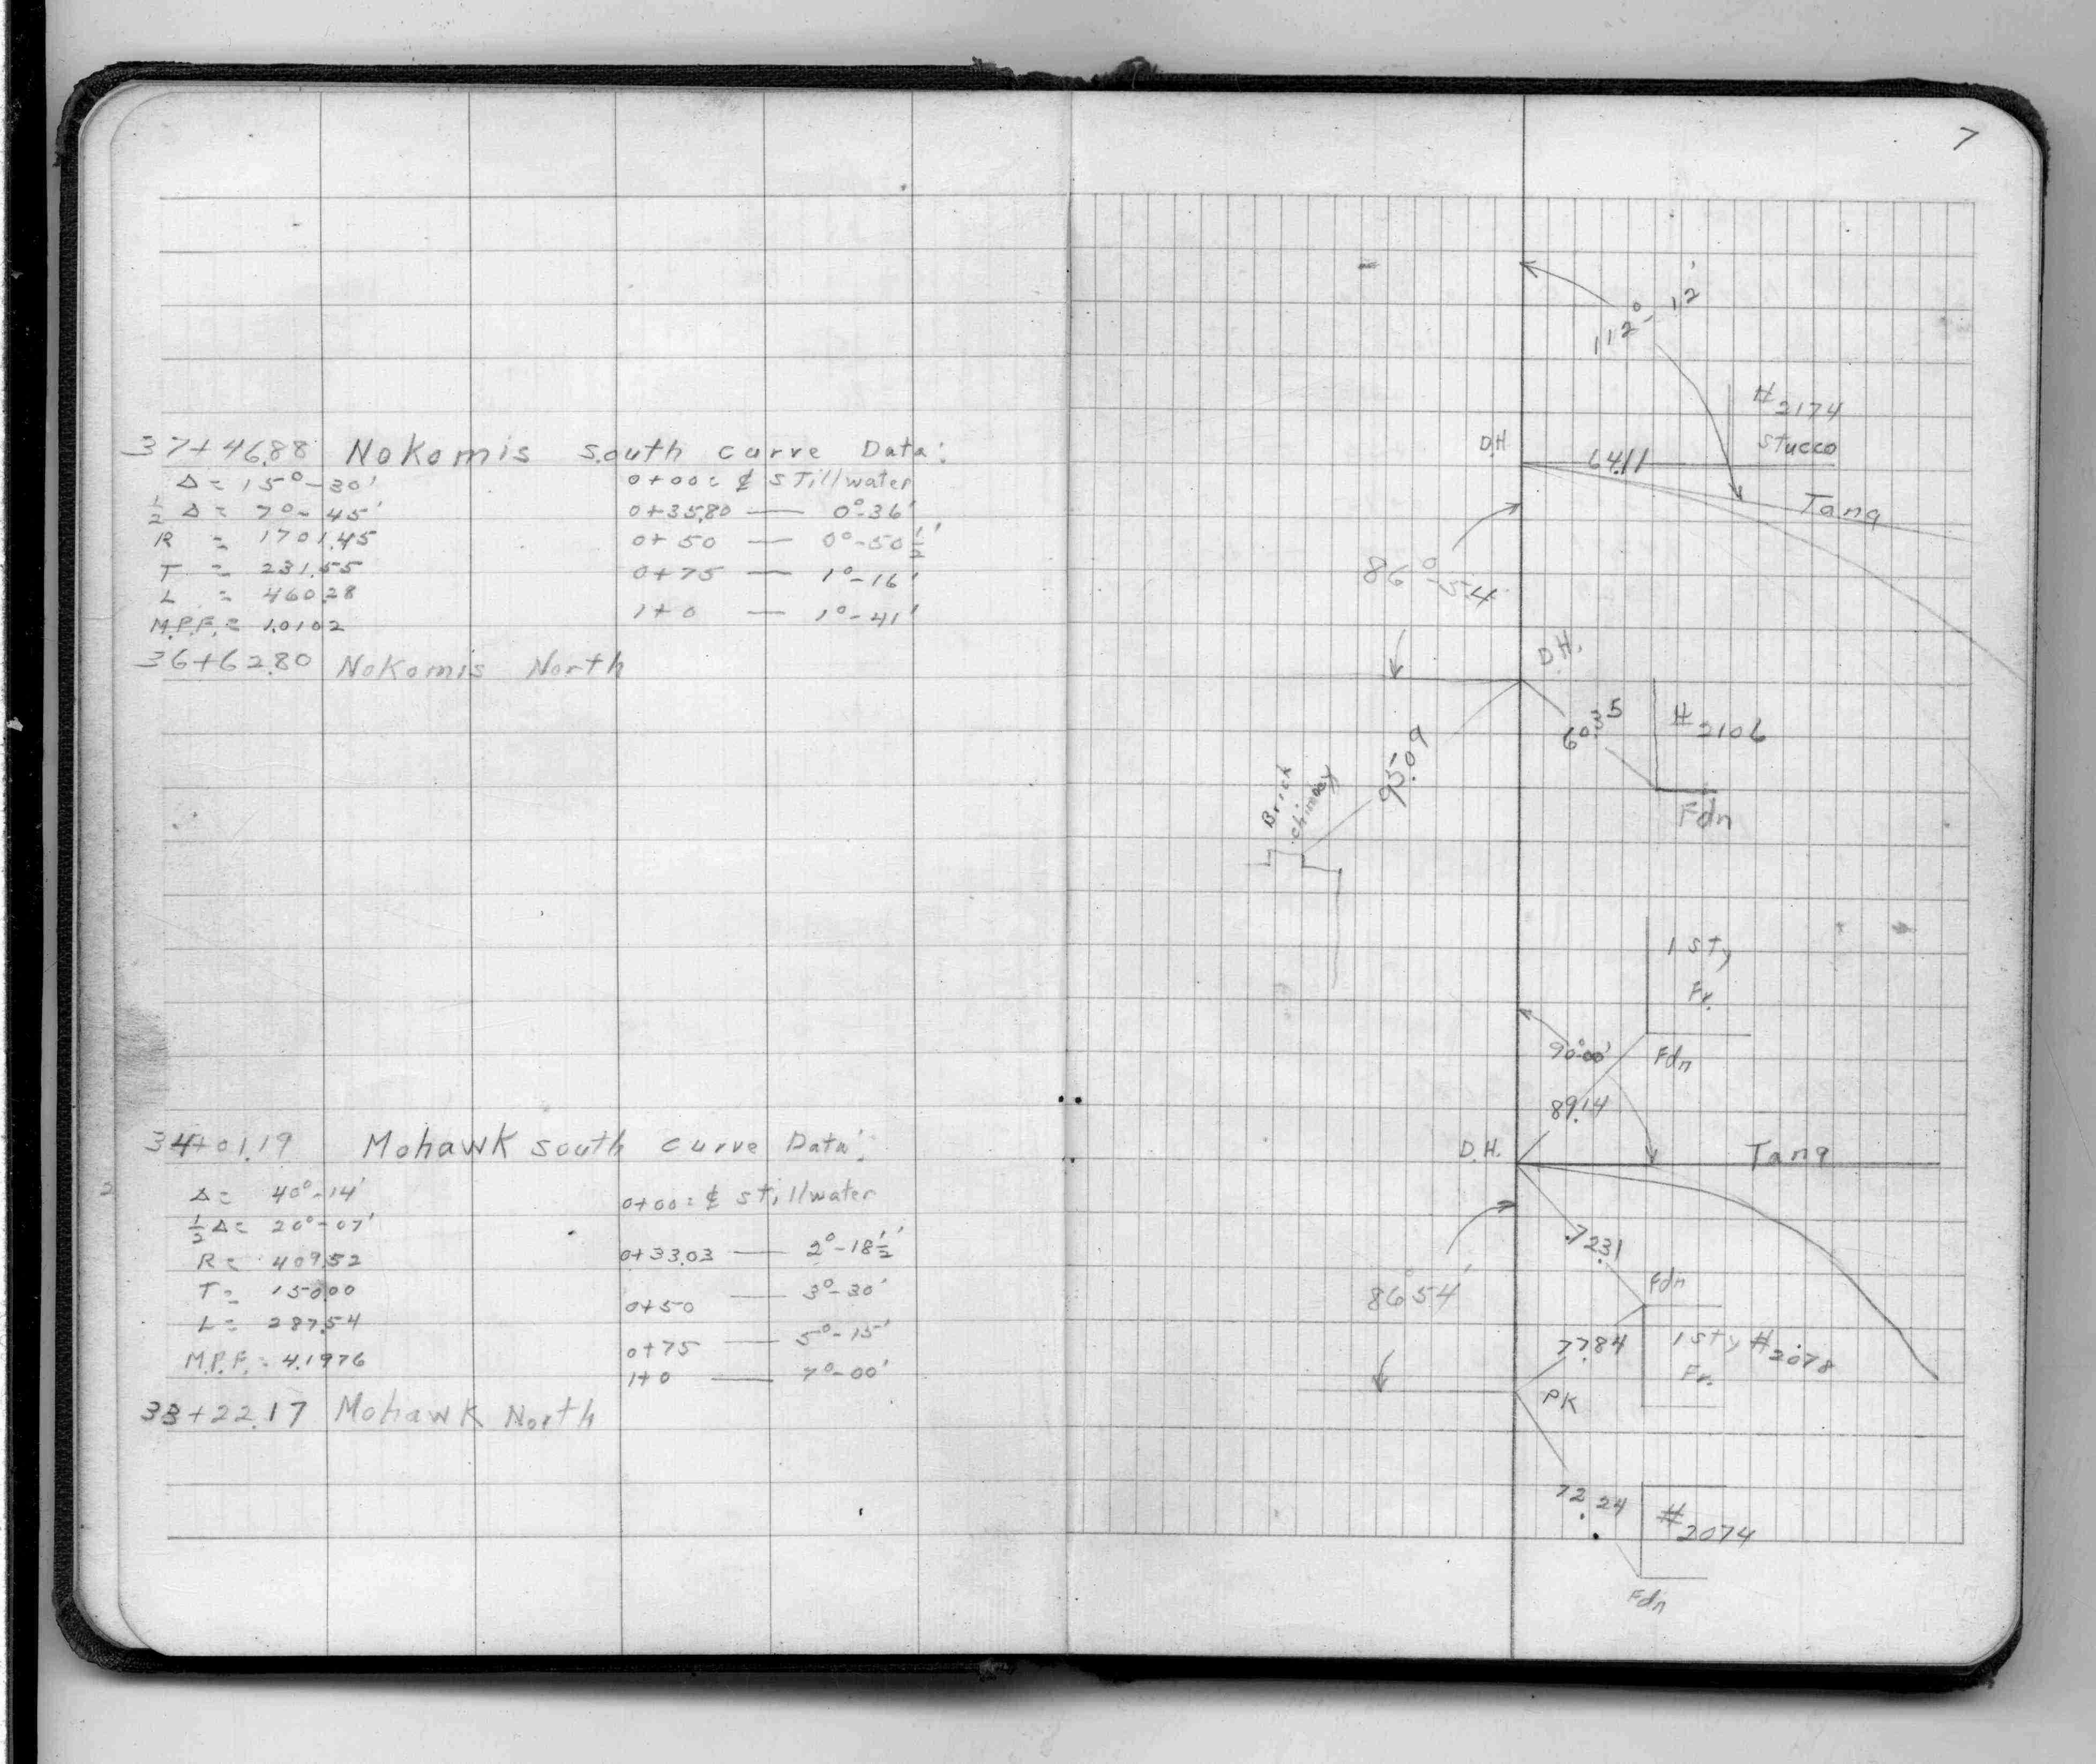 7
37+46.88 Nokomis south curve Data:
Δ = 15°-30' 0+00 = ℄ Stillwater
½ Δ = 7°-45' 0+35.80 — 0°-36'
R = 1701.45 0+50 — 0°-50½'
T = 231.55 0+75 — 1°-16'
L = 460.28 1+0 — 1°-41'
M.P.F. = 1.0102
36+62.80 Nokomis North
34+01.19 Mohawk south curve Data:
Δ = 40°-14' 0+00 = ℄ stillwater
½ Δ = 20°-07'
R = 409.52 0+33.03 — 2°-18½'
T = 150.00 0+50 — 3°-30'
L = 287.54 0+75 — 5°-15'
M.P.F. = 4.1976 1+0 — 7°-00'
33+22.17 Mohawk North
2
112°-12'
#2174
Stucco
D.H.
64.11
Tang
86°-54'
D.H.
60.35
#2106
Fdn
95.09
Brick
chimney
1 sty
Fr.
90°00'
Fdn
89.14
D.H.
Tang
72.31
Fdn
86°54'
77.84
1 sty #2078
Fr.
PK
72.24
#2074
Fdn